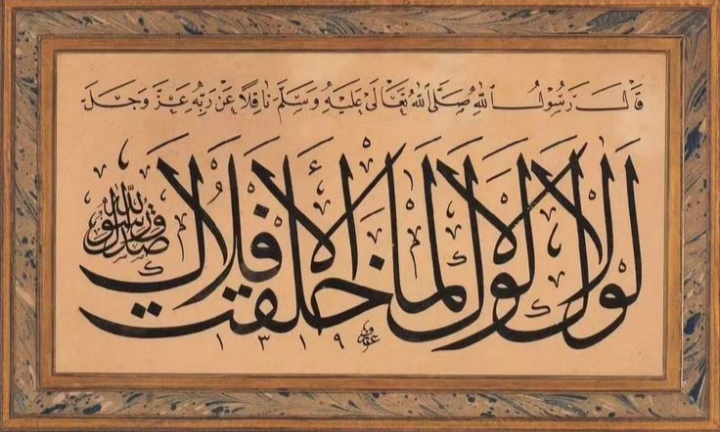 قَالَ رَسُولُ اللهِ صَلَّى اللهُ تَعَالَى عَلَيْهِ وَسَلَّمَ نَاقِلًا عَنْ رَبِّهِ عَزَّ وَجَلَّ
لولاك لولاك لما خلقت الأفلاك
صدق رسول الله
١٣١٩